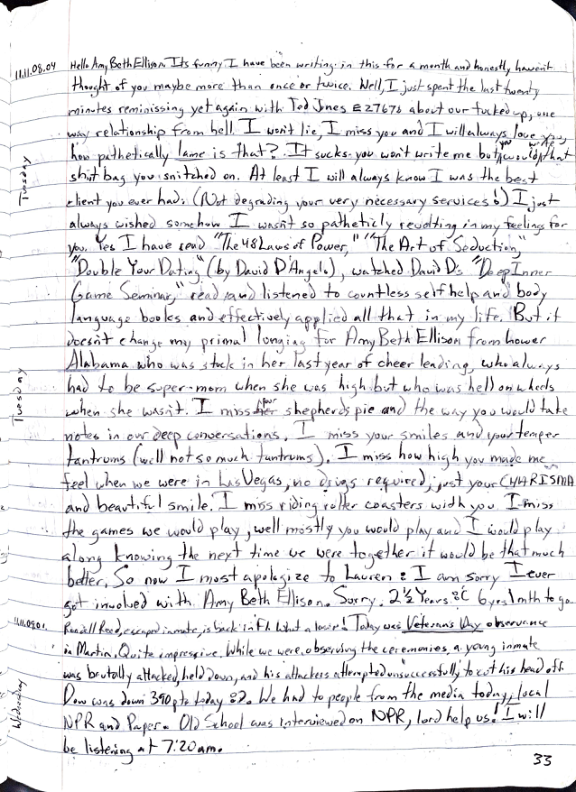 11.11.08.04 Hello Amy Beth Ellison. Its funny I have been writing in this for a month and honestly, haven't
thought of you maybe more than once or twice. Well, I just spent the last twenty
minutes reminissing yet again with Tod Jnes E27676 about our fucked up, one
way relationship from hell. I won't lie, I miss you and I will always love you,
how pathetically lame is that? It sucks you won't write me but you would that
shit bag you snitched on. At least I will always know I was the best
client you ever had. (Not degrading your very necessary services) I just
always wished somehow I wasn't so patheticly revolting in my feelings for
you. Yes I have read "The 48 Laws of Power," "The Art of Seduction,"
"Double Your Dating" (by David D'Angelo), watched David D's "Deep Inner
Game Seminar," read and listened to countless self help and body
language books and effectively applied all that in my life. But it
doesn't change my primal longing for Amy Beth Ellison from Lower
Alabama who was stuck in her last year of cheer leading, who always
had to be super-mom when she was high but who was hell on wheels
when she wasn't. I miss your shepherds pie and the way you would take
notes in our deep conversations. I miss your smiles and your temper
tantrums (well not so much tantrums). I miss how high you made me
feel when we were in Las Vegas, no drugs required, just your CHARISMA
and beautiful smile. I miss riding roller coasters with you I miss
the games we would play, well mostly you would play and I would play
along knowing the next time we were together it would be that much
better. So now I most apologize to Lauren: I am sorry I ever
got involved with Amy Beth Ellison. Sorry. 2½ Years 6 yes 1 mth to go.
Randell Road, escaped inmate, is back in Fl. What a loser! Today was Veterans Day observance
in Martin. Quite impressive. While we were observing the ceremonies, a young inmate
was brutally attacked, held down, and his attackers attempted unsuccessfully to cut his head off.
Dow was down 390 pts today. We had to people from the media today, local
NPR and Paper. Old School was interviewed on NPR, lord help us! I will
be listening at 7:20 am.
Tuesday
Tuesday
Wednesday
33